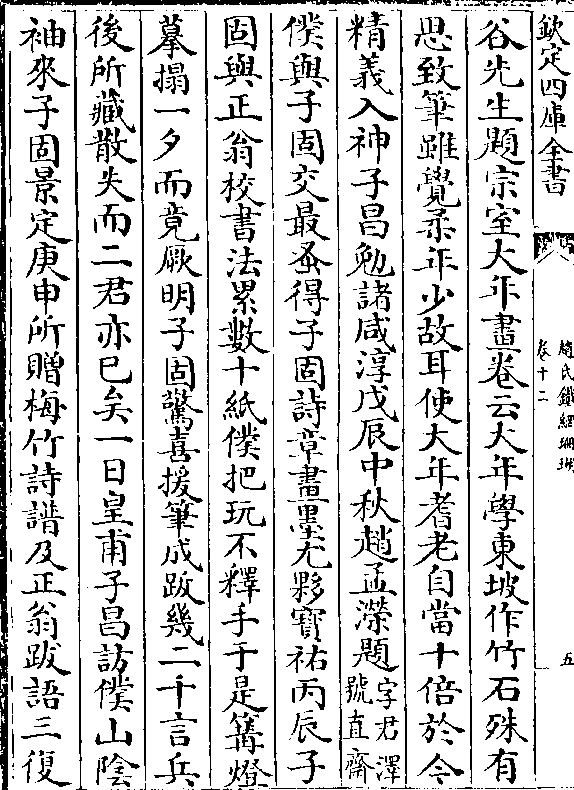 欽定四庫全書
趙氏鐵網珊瑚
卷十二
五
谷先生題宗室大年畫卷云大年學東坡作竹石殊有
思致筆雖覺柔年少故耳使大年耆老自當十倍於今
精義入神子昌勉諸咸淳戊辰中秋趙孟濚題字君澤號直齋
僕與子固交最蚤得子固詩章畫墨尤夥寶祐丙辰子
固與正翁校書法累數十紙僕把玩不釋手于是篝燈
摹搨一夕而竟厥明子固驚喜援筆成跋幾二千言兵
後所藏散失而二君亦已矣一日皇甫子昌訪僕山陰
袖來子固景定庚申所贈梅竹詩譜及正翁跋語三復